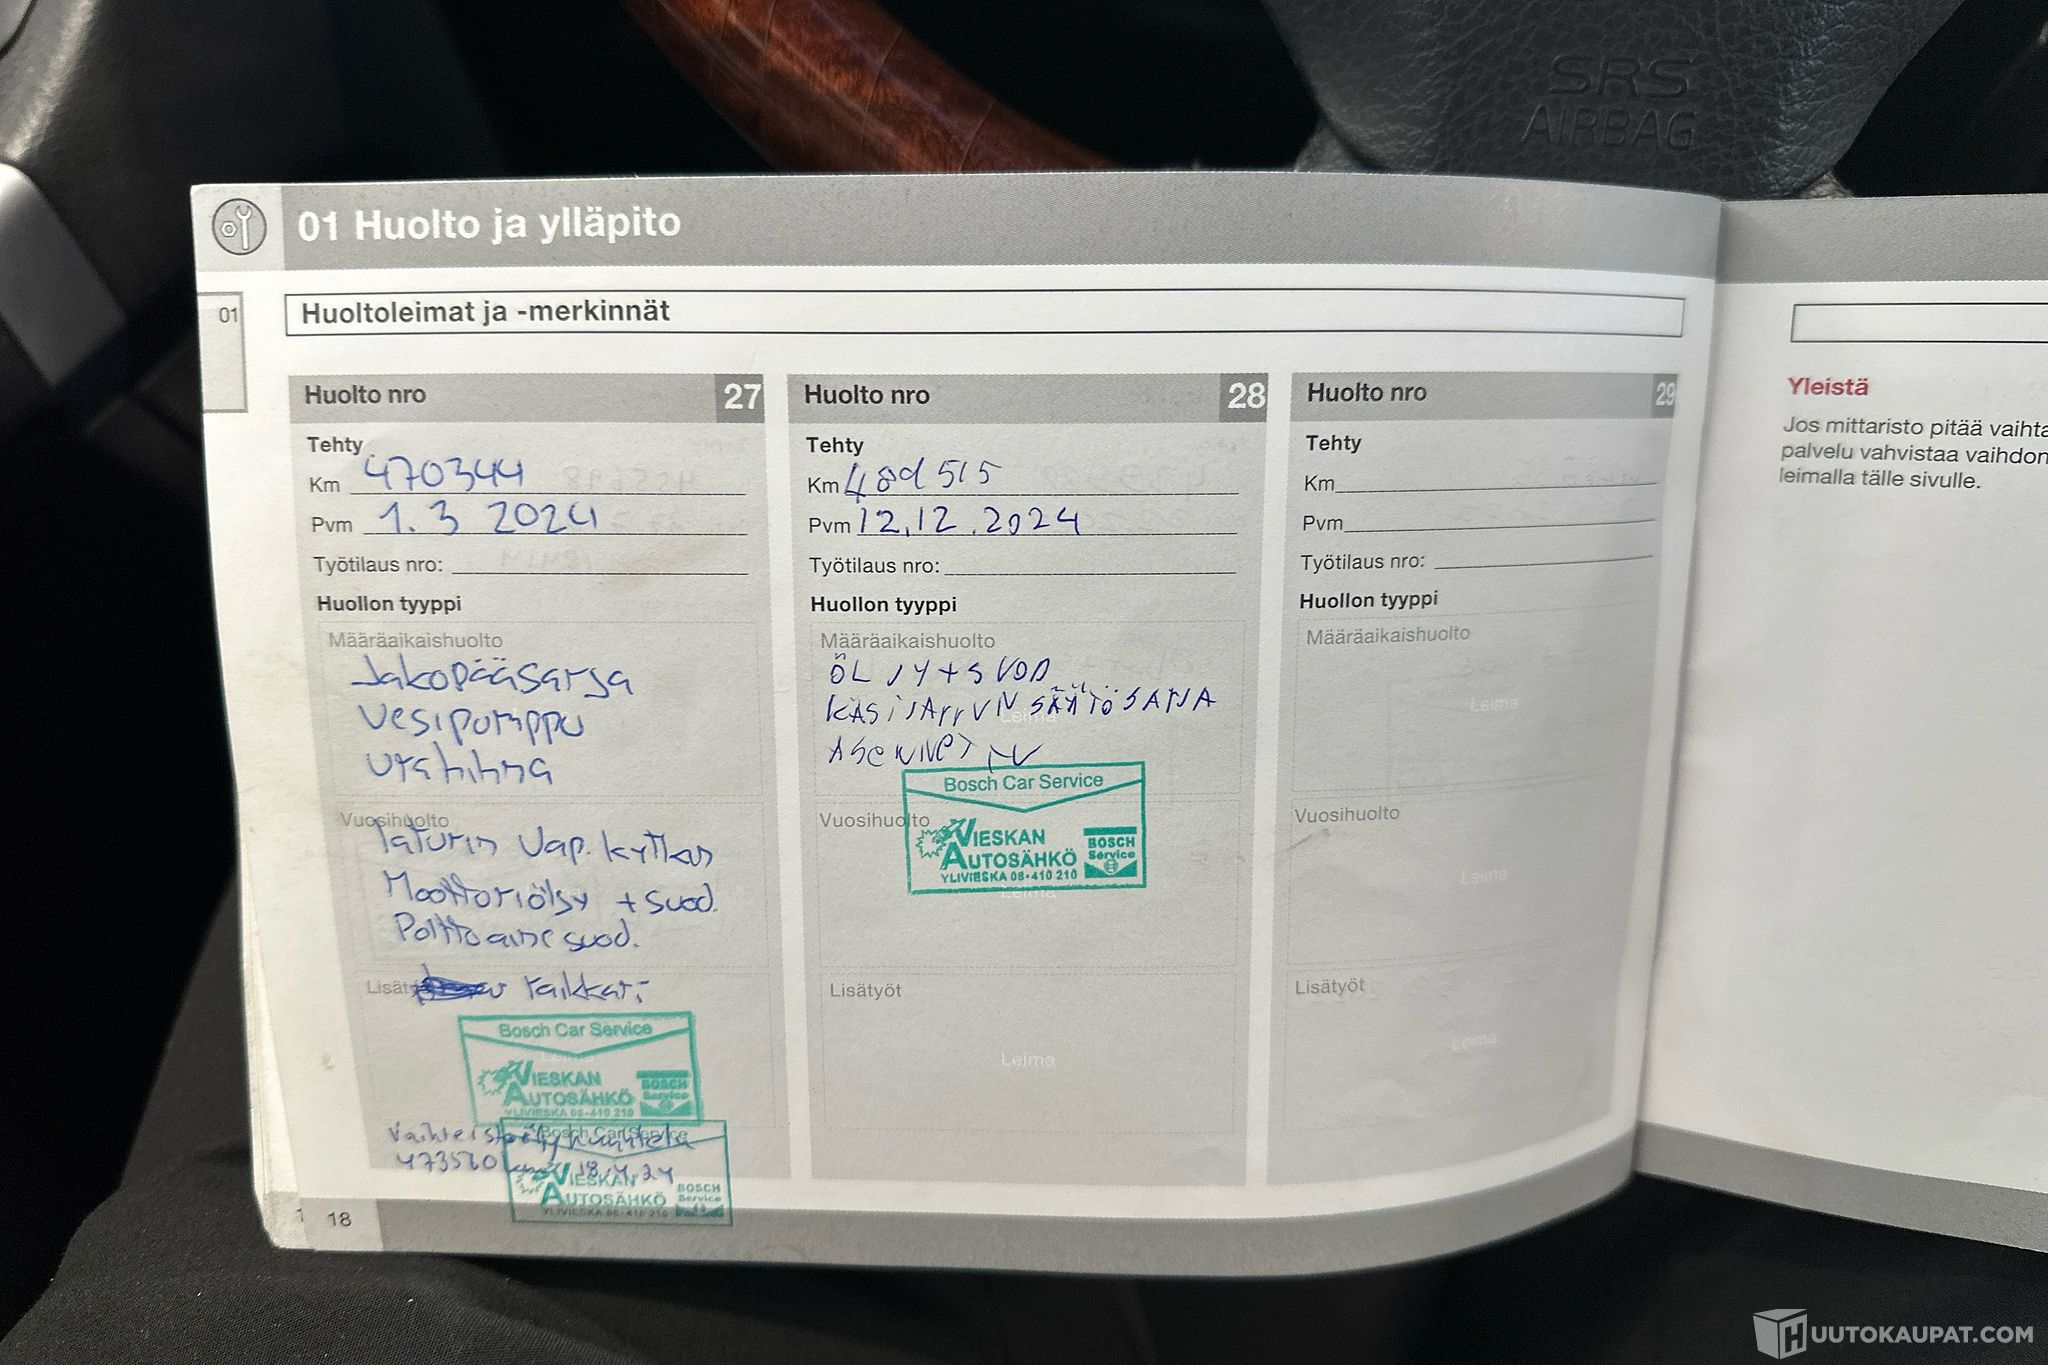 SRS
AIRBAG
01 Huolto ja ylläpito
01
Huoltoleimat ja -merkinnät
Huolto nro 27
Tehty
Km 470344
Pvm 1.3 2024
Työtilaus nro:
Huollon tyyppi
Määräaikaishuolto
Jakopääsarja
vesipumppu
urahihna
Vuosihuolto
laturin vap. kytkin
Moottoriöljy + suod.
Polttoaine suod.
Lisätyöt
raikkari
Leima
Bosch Car Service
VIESKAN
AUTOSÄHKÖ
YLIVIESKA 08-410 210
BOSCH
Service
Vaihteistoöljy
473560
18.4.24
Bosch Car Service
VIESKAN
AUTOSÄHKÖ
YLIVIESKA 08-410 210
BOSCH
Service
1 18
Huolto nro 28
Tehty
Km 489 515
Pvm 12.12.2024
Työtilaus nro:
Huollon tyyppi
Määräaikaishuolto
ÖLJY + SUOD
KÄSIJARRUN SÄÄTÖSARJA
Leima
ASENNET
Bosch Car Service
Vuosihuolto
VIESKAN
AUTOSÄHKÖ
YLIVIESKA 08-410 210
BOSCH
Service
Leima
Lisätyöt
Leima
Huolto nro 29
Tehty
Km
Pvm
Työtilaus nro:
Huollon tyyppi
Määräaikaishuolto
Leima
Vuosihuolto
Leima
Lisätyöt
Leima
Yleistä
Jos mittaristo pitää vaihta
palvelu vahvistaa vaihdon
leimalla tälle sivulle.
HUUTOKAUPAT.COM